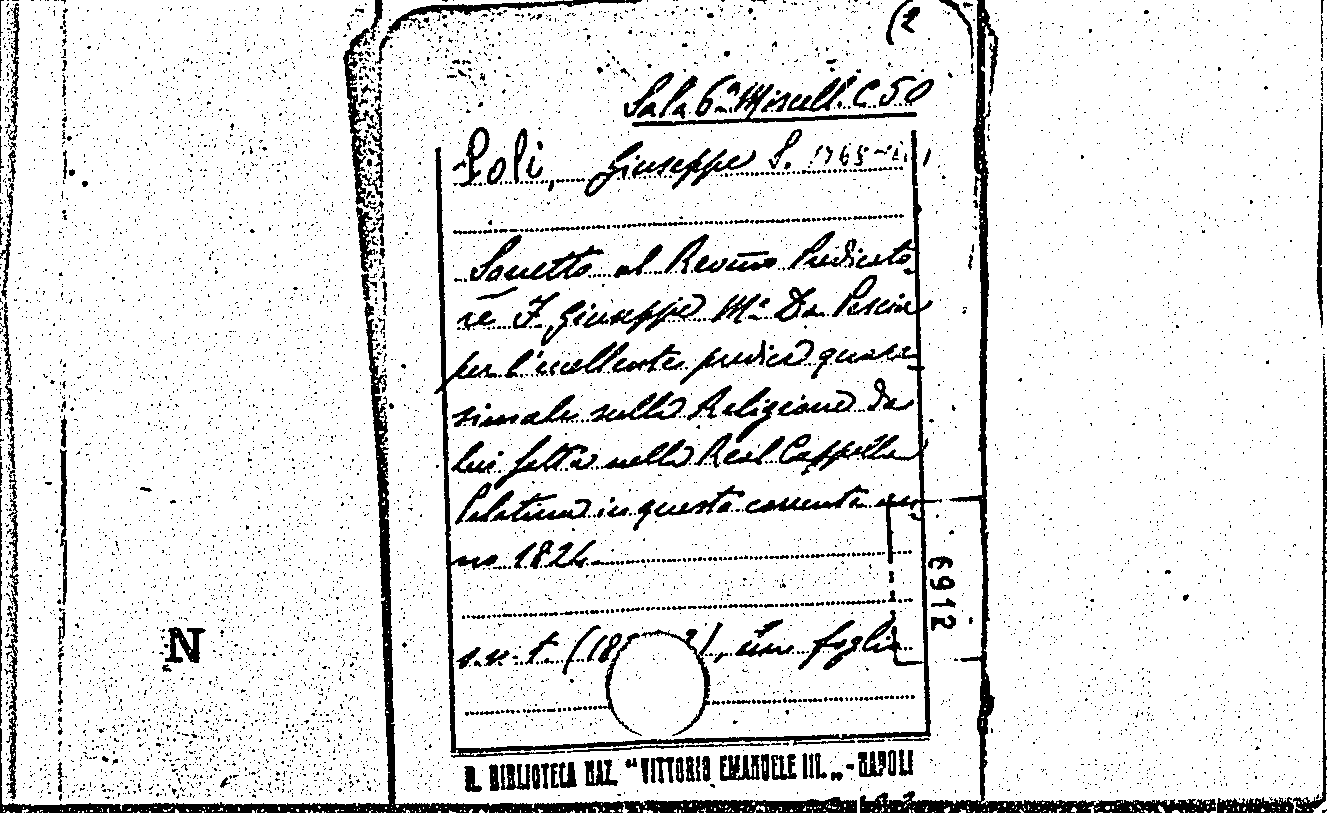 (2
Sala 6ª Miscell. C 50
Poli, Giuseppe S.
Sonetto al Revm̃o Predicato
re F. Giuseppe Mª Da Pescia
per l'eccellente predica quare
simale sulla Religione da
lui fatta nella Real Cappella
Palatina in questo corrente an
no 1824.
6912
N
s.n.t. (18 ), un foglio
R. BIBLIOTECA NAZ. "VITTORIO EMANUELE III. „ - NAPOLI